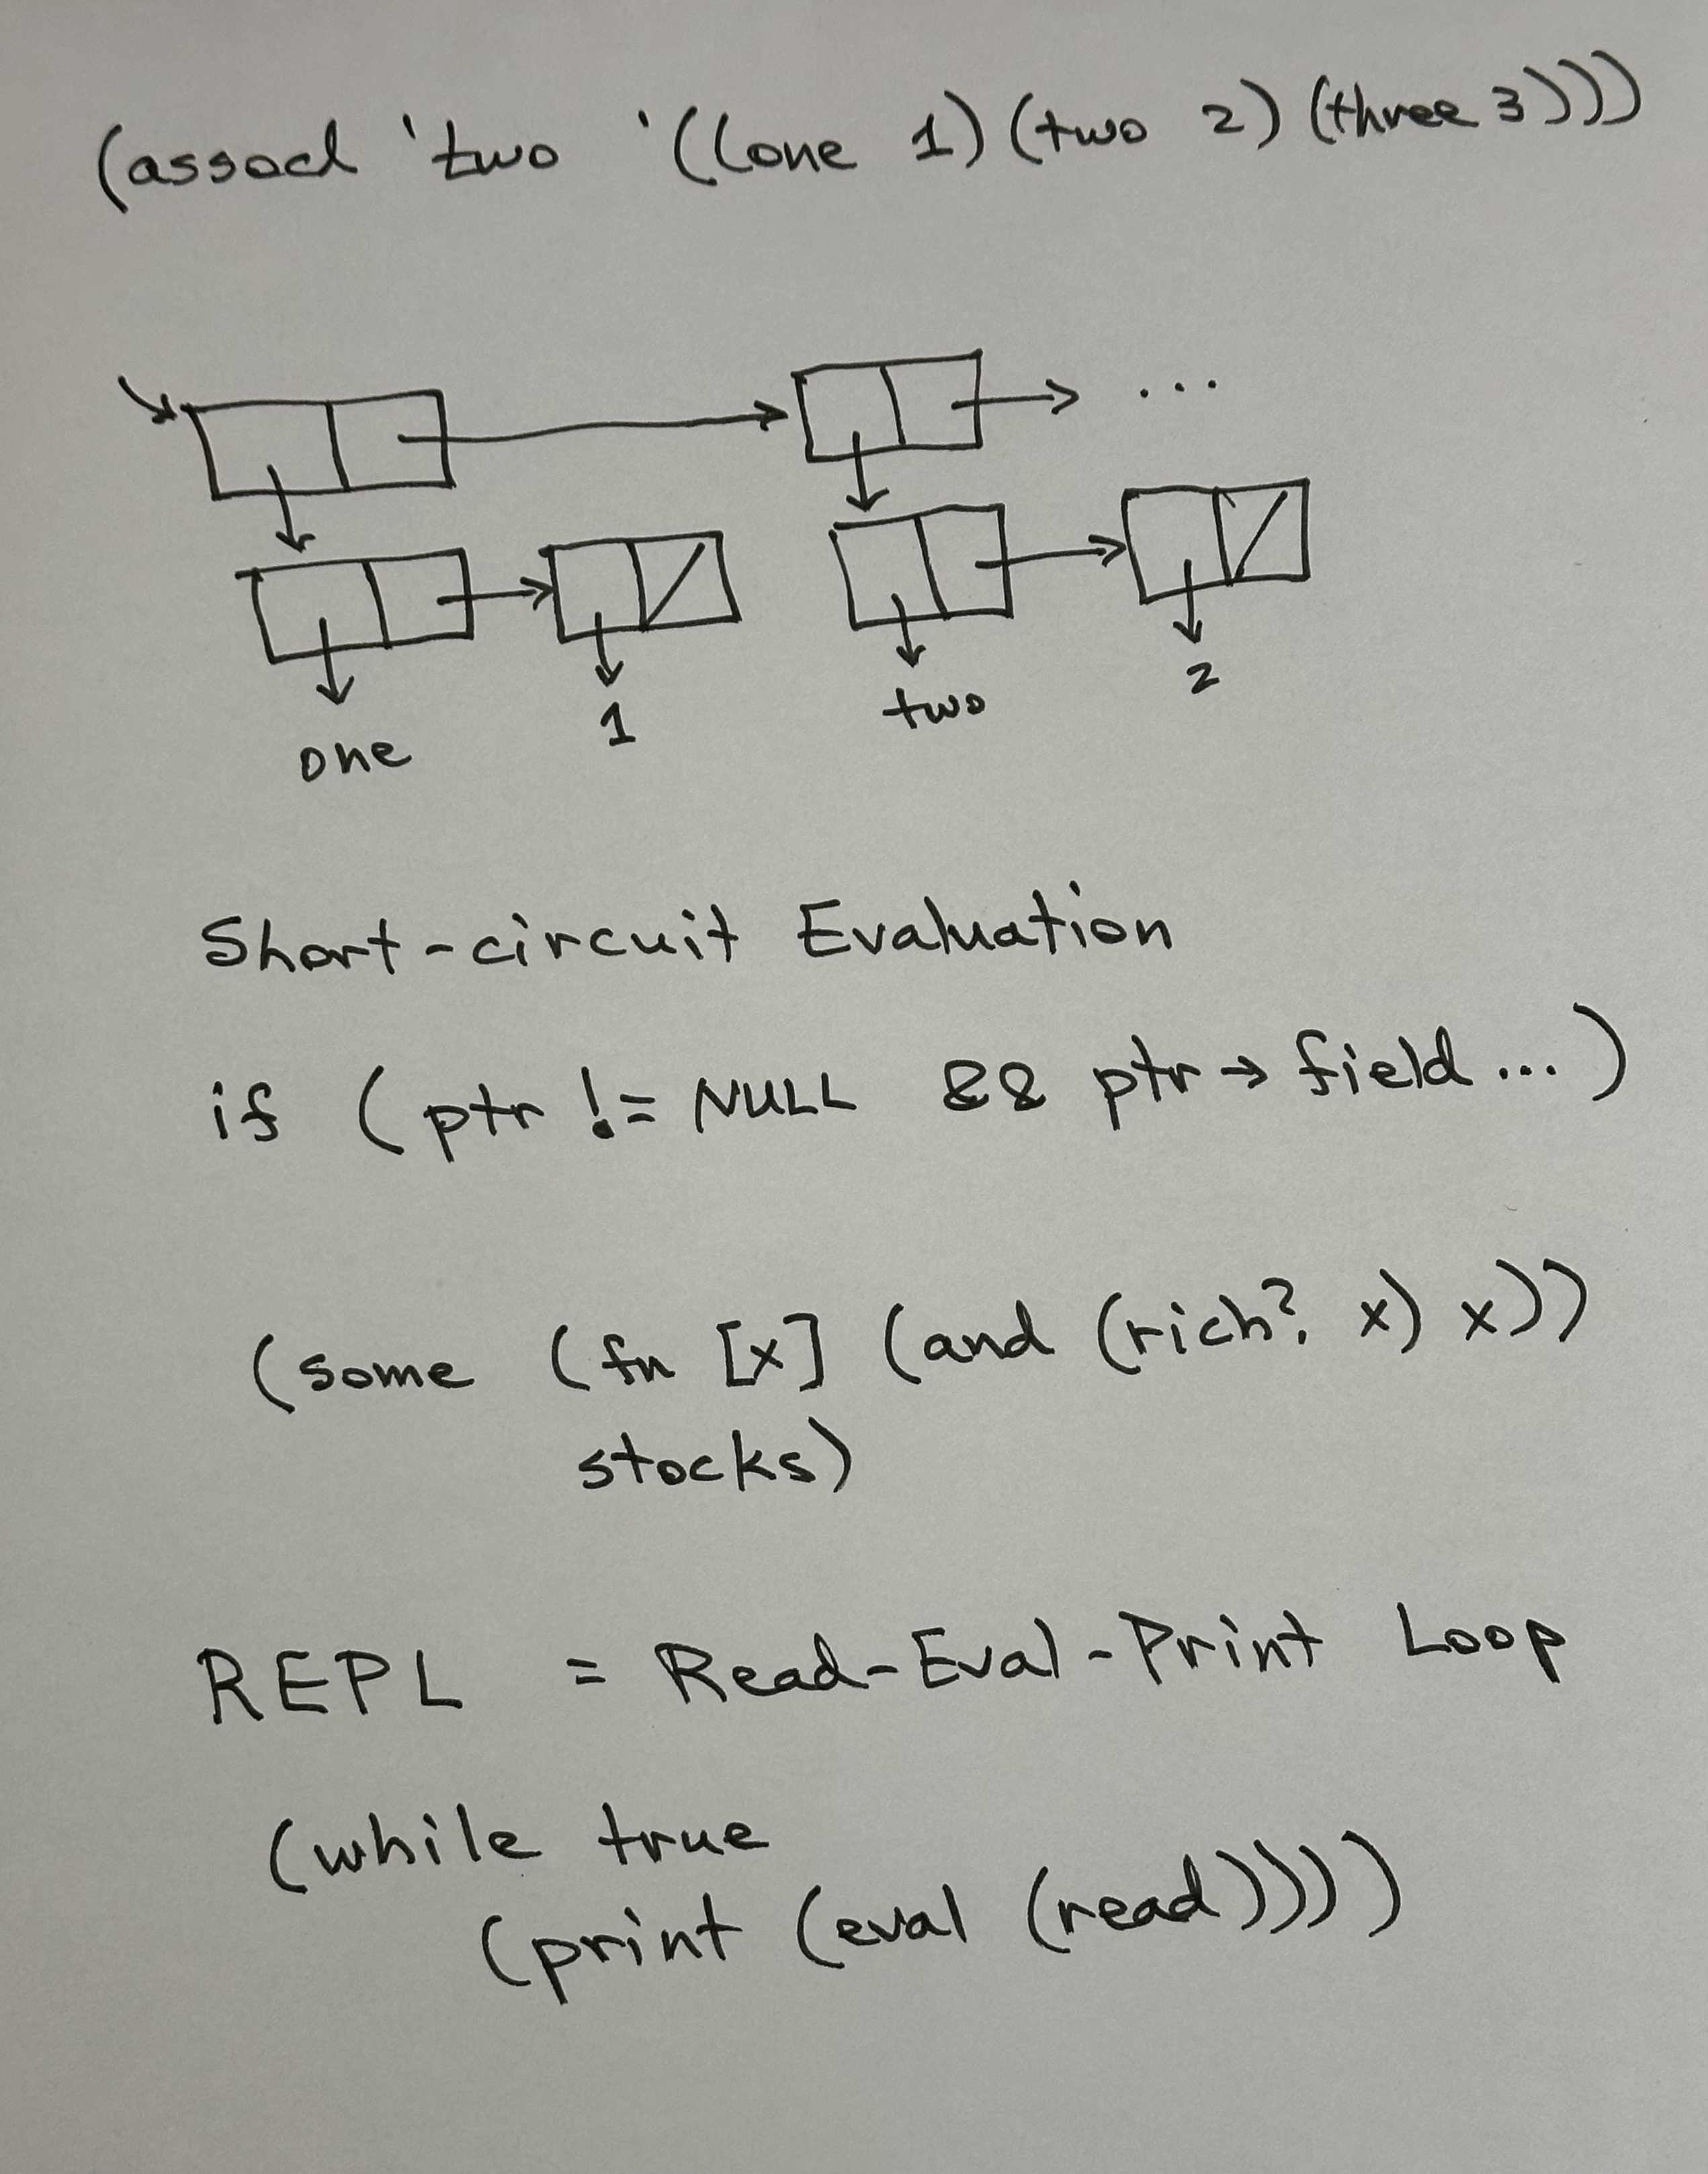 (assocl 'two '((one 1) (two 2) (three 3)))
...
one 1 two 2
Short-circuit Evaluation
if (ptr != NULL && ptr → field ... )
(some (fn [x] (and (rich? x) x))
stocks)
REPL = Read-Eval-Print Loop
(while true
(print (eval (read))))